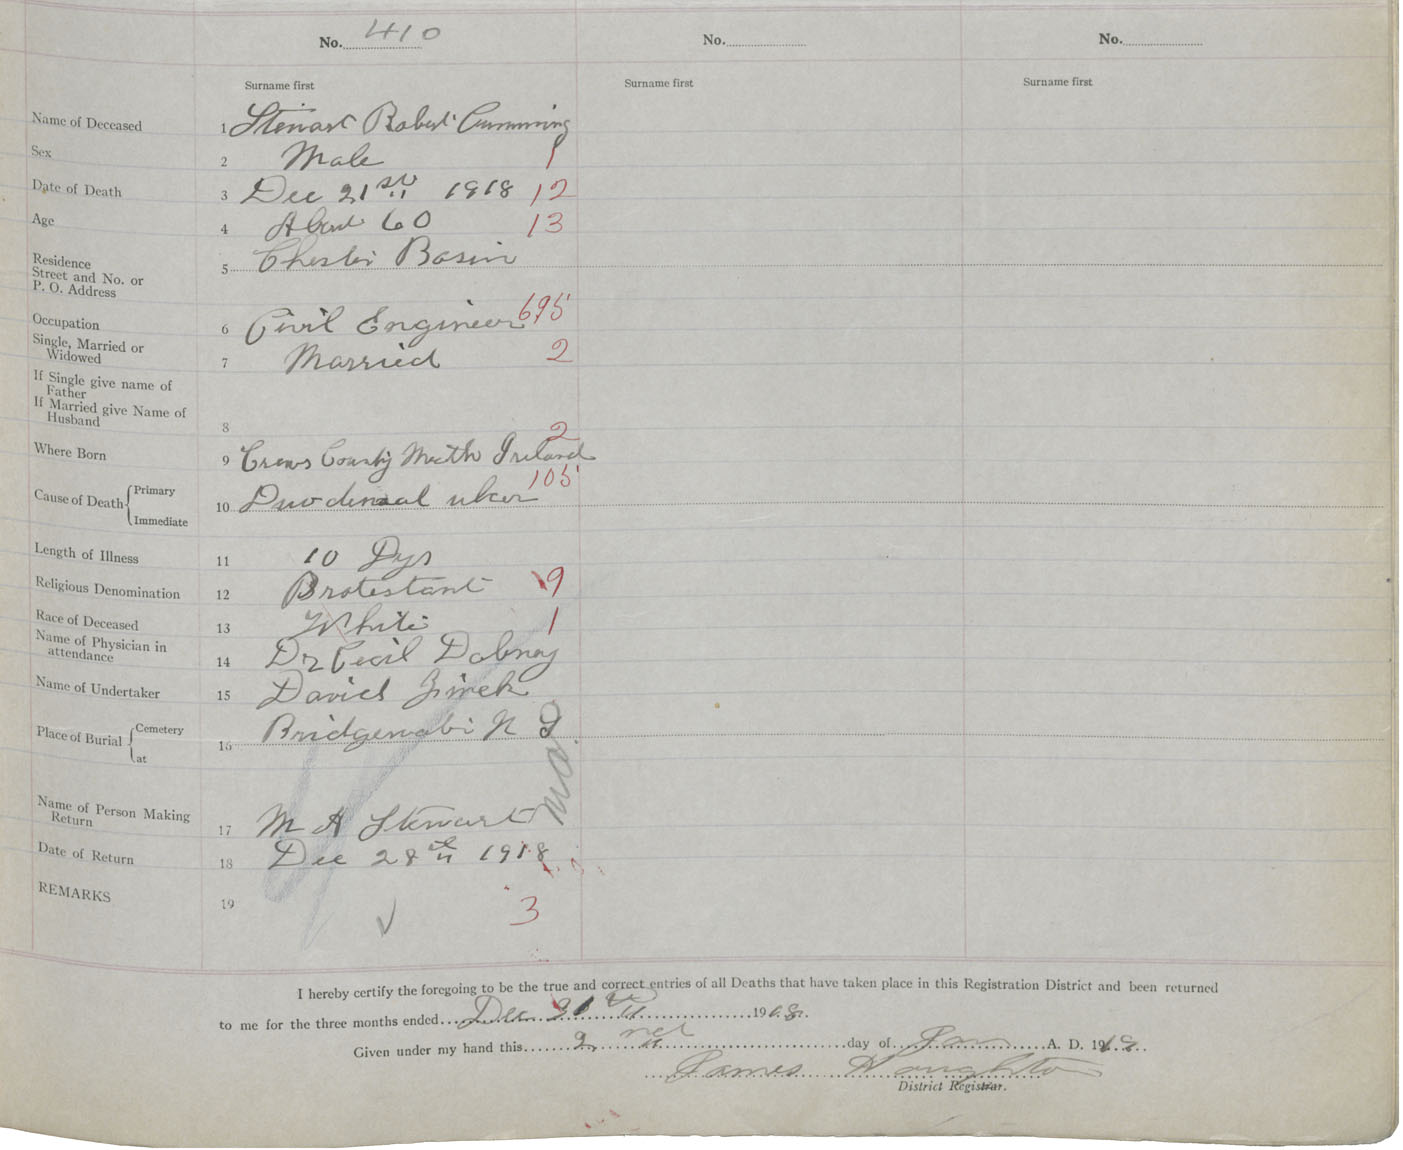 No. 410 No. No.
Surname first Surname first Surname first
Name of Deceased 1 Stewart Robert Cumming
Sex 2 Male 1
Date of Death 3 Dec 21st 1918 12
Age 4 About 60 13
Residence
Street and No. or
P. O. Address 5 Chester Basin
Occupation 6 Civil Engineer 695
Single, Married or
Widowed 7 Married 2
If Single give name of
Father
If Married give Name of
Husband 8 2
Where Born 9 County Meath Ireland
Cause of Death Primary 105
Immediate 10 Duodenal ulcer
Length of Illness 11 10 Dys
Religious Denomination 12 Protestant 9
Race of Deceased 13 White 1
Name of Physician in
attendance 14 Dr Cecil Dabney
Name of Undertaker 15 David
Place of Burial Cemetery
at 16 Bridgewater N S
Name of Person Making
Return 17 M A Stewart
Date of Return 18 Dec 28th 1918
REMARKS 19 3
I hereby certify the foregoing to be the true and correct entries of all Deaths that have taken place in this Registration District and been returned
to me for the three months ended Dec 31st 1918.
Given under my hand this 2nd day of Jan A. D. 1919
James Houghton
District Registrar.